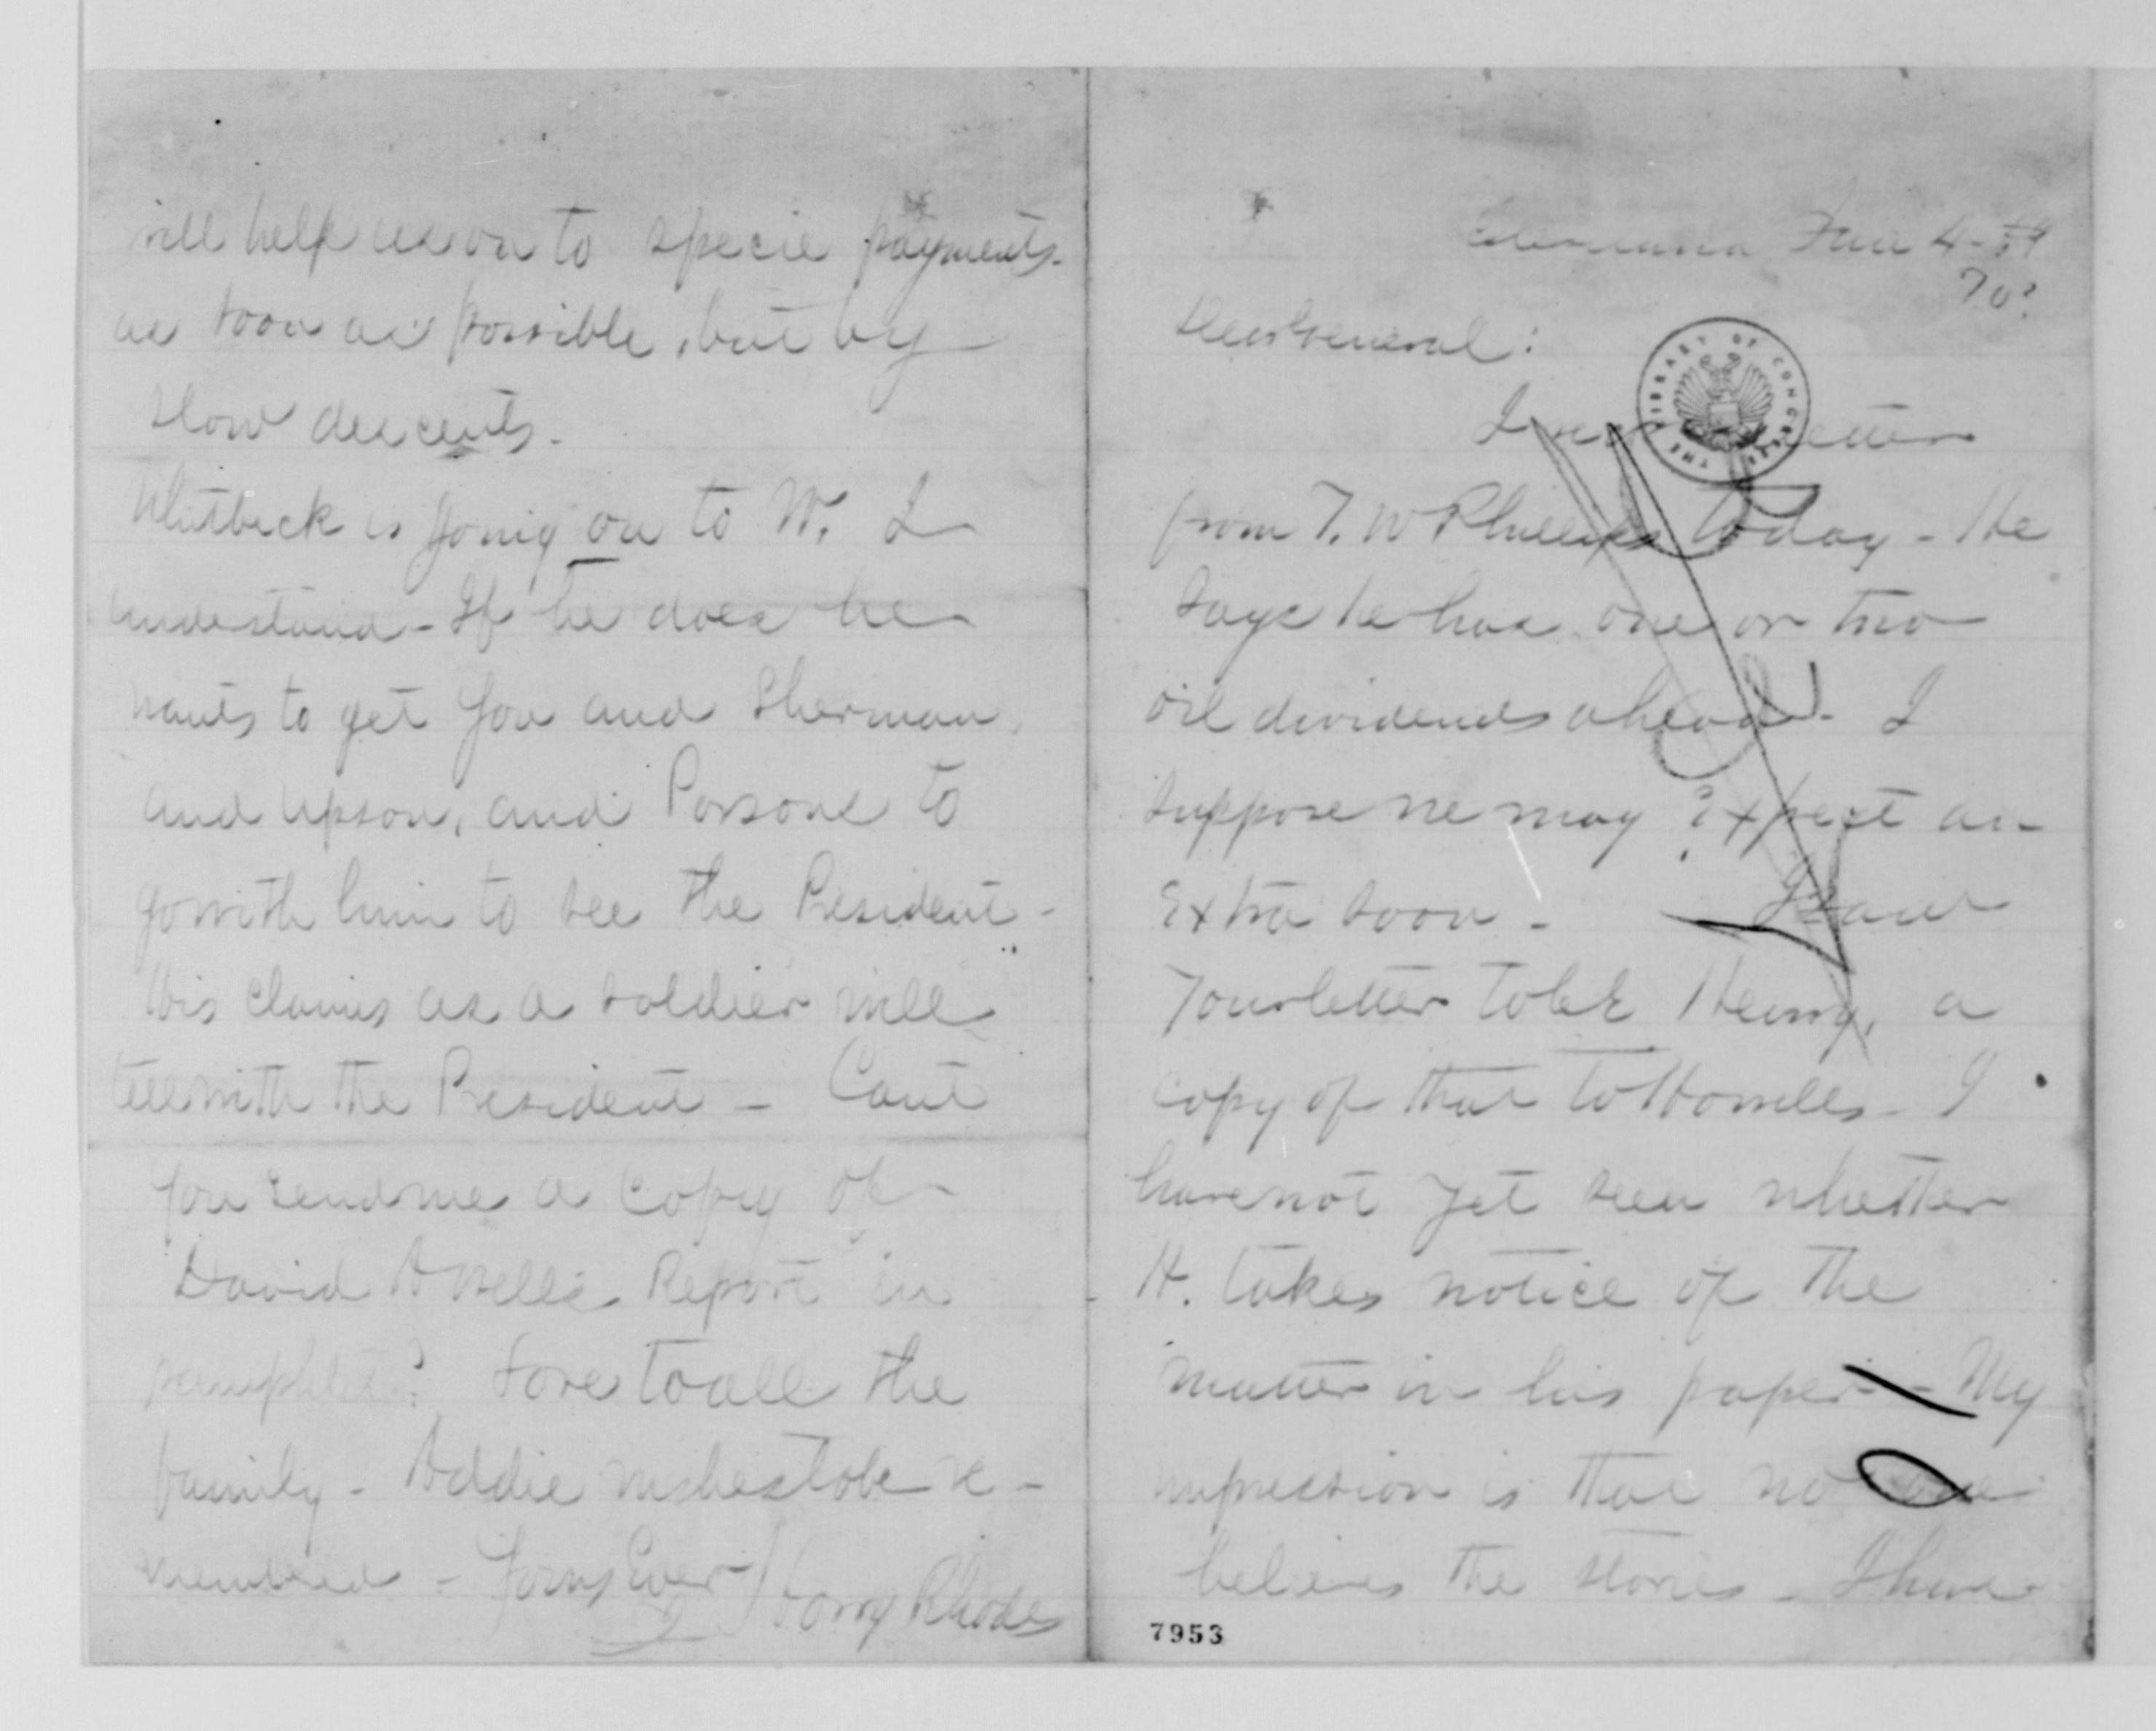 will help us on to specie payments.
as soon as possible, but by
slow descents.
Whitbeck is going on to W. I
understand - If he does he
wants to get you and Sherman,
and Upson, and Parsons to
go with him to see the President -
His claims as a soldier will
tell with the President - Can't
you send me a copy of
David A Wells Report in
pamphlet? Love to all the
family - Addie wishes to be re-
membered - Yours Ever
Harry Rhodes
Cleveland Jan 4 - 69
70?
Dear General:
I letter
from T. W Phillips today - He
says he has one or two
oil dividends ahead - I
suppose we may expect an
Extra soon - I saw
Your letter to Henry, a
copy of that to Howells - I
have not yet seen whether
H. takes notice of the
matter in his paper - My
impression is that no one
believes the stories - I have
7953
THE LIBRARY OF CONGRESS